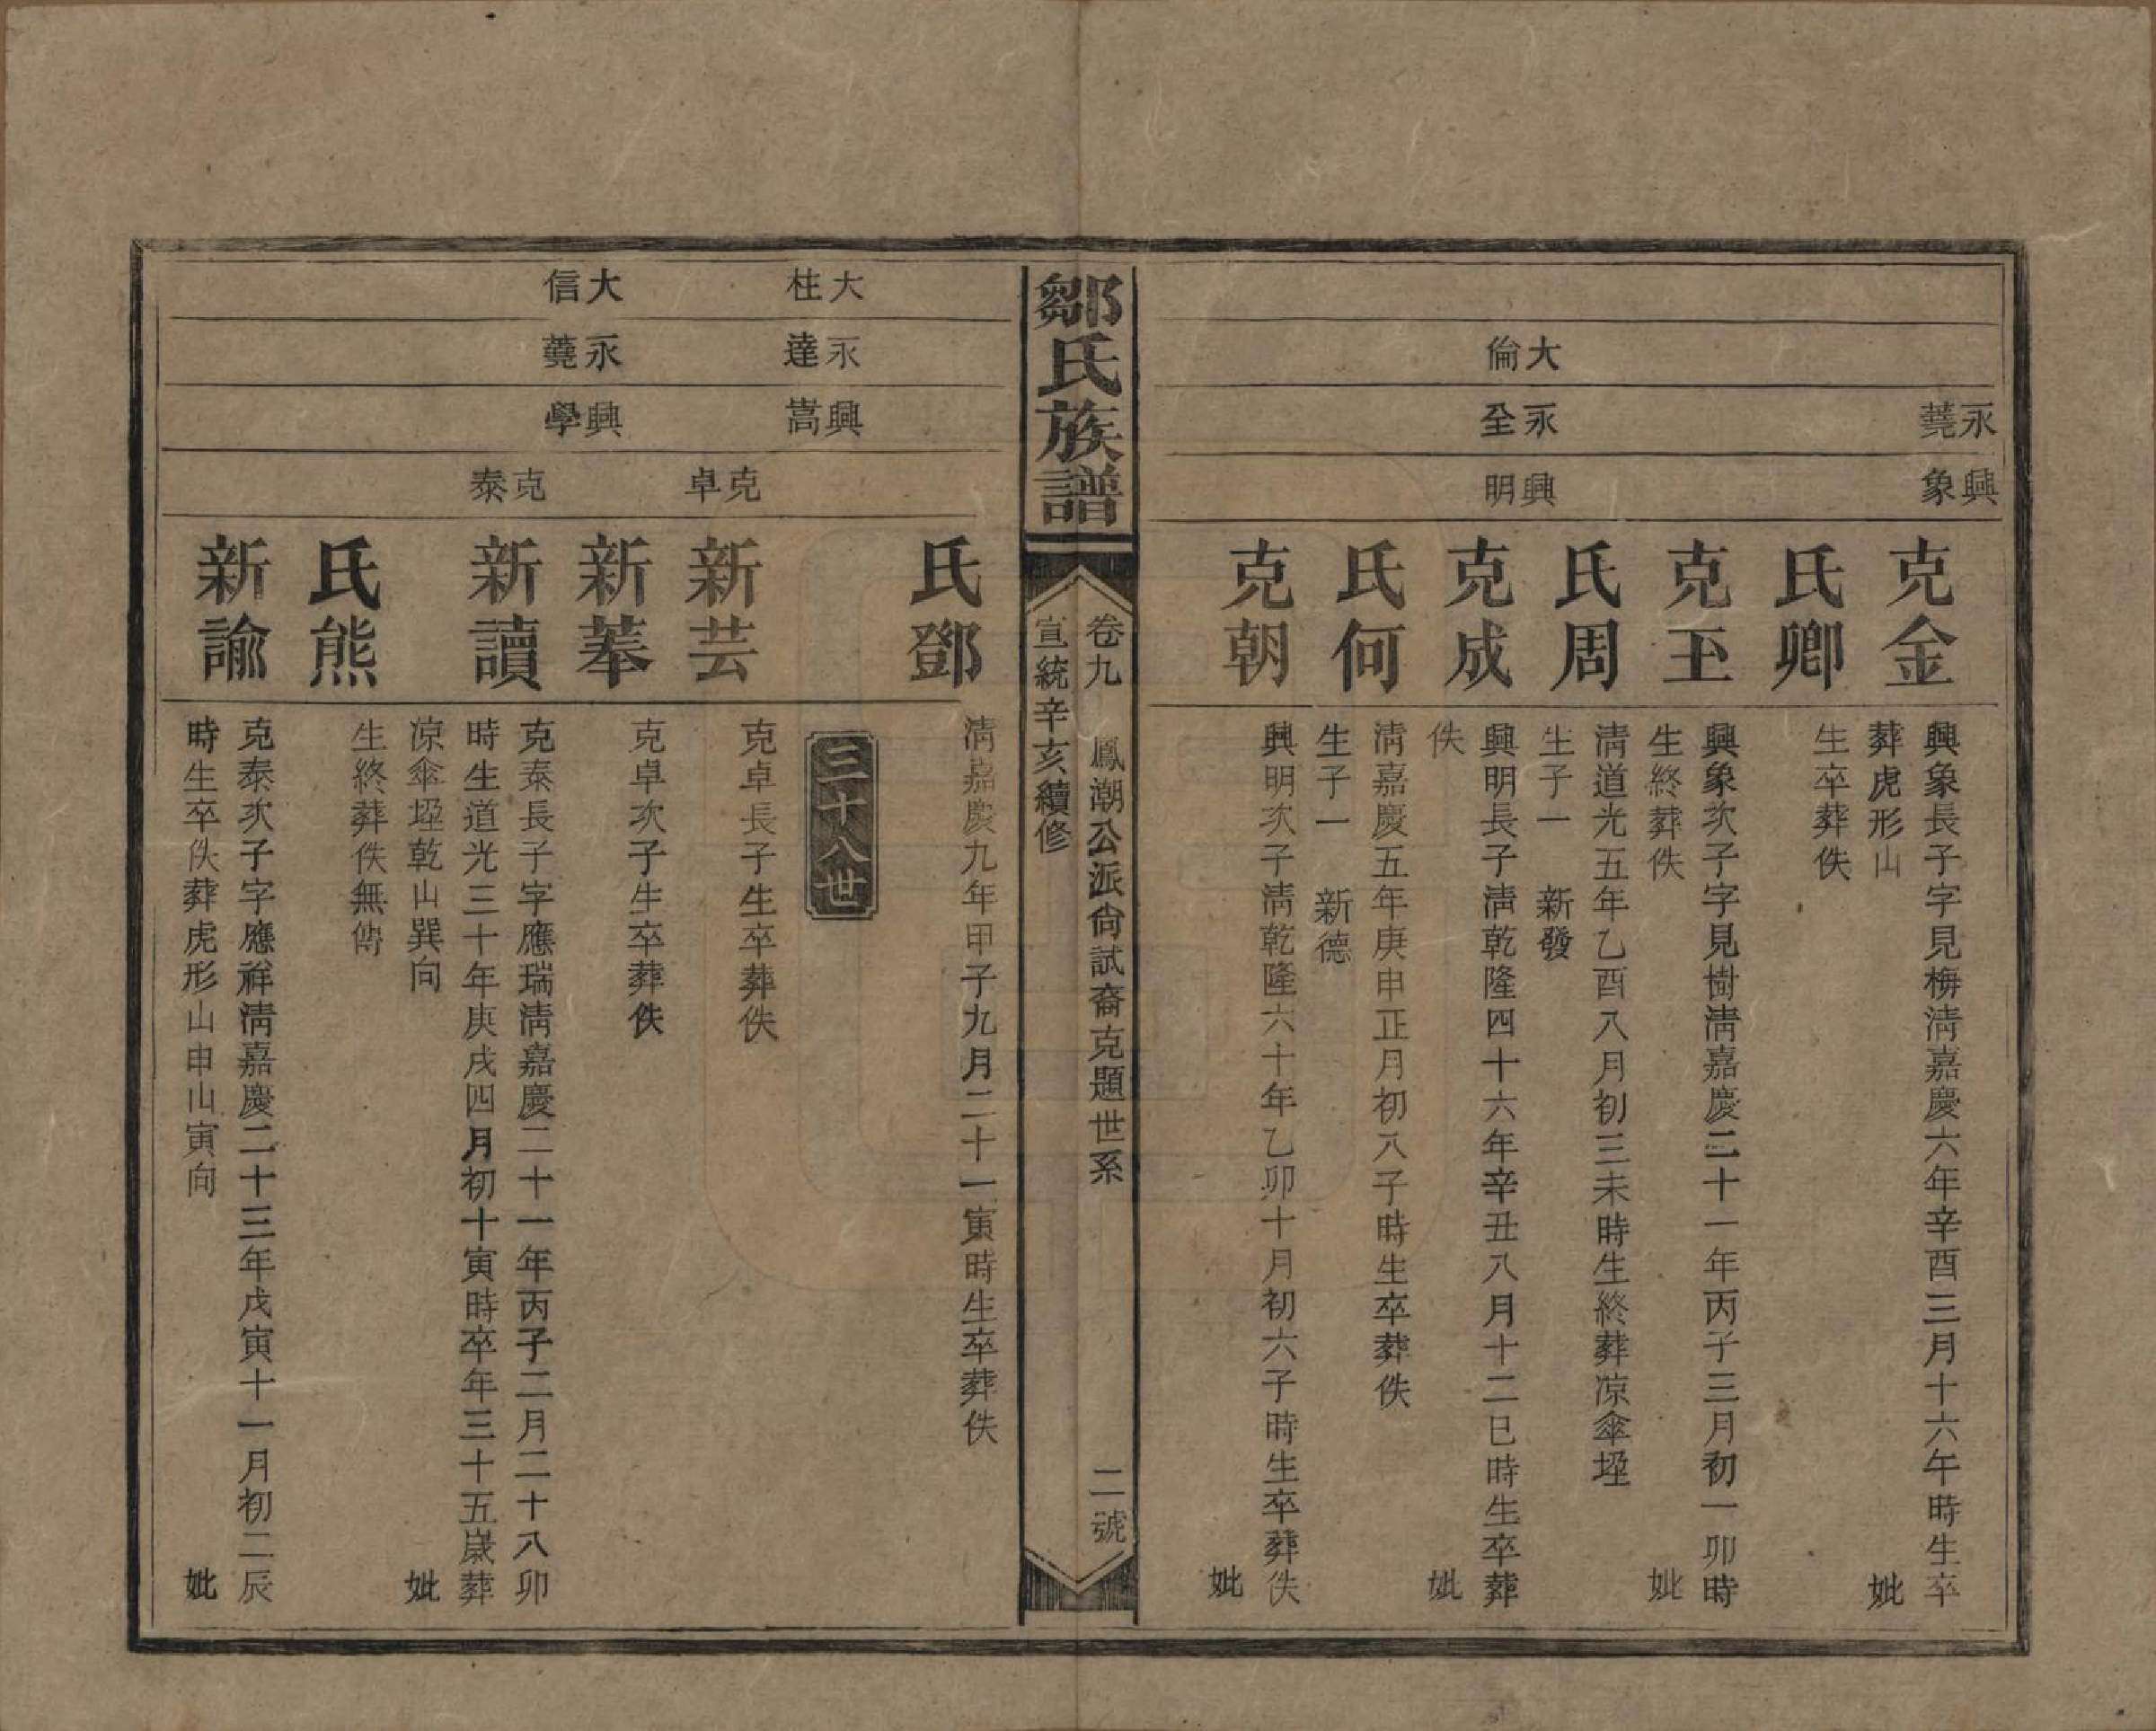 永蕘
興象
克金
興象長子字見梅淸嘉慶六年辛酉三月十六午時生卒
葬虎形山
妣
氏卿
生卒葬佚
克玉
興象次子字見樹淸嘉慶二十一年丙子三月初一卯時
生終葬佚
妣
氏周
淸道光五年乙酉八月初三未時生終葬凉傘堙
生子一　新發
大倫
永全
興明
克成
興明長子淸乾隆四十六年辛丑八月十二巳時生卒葬
佚
妣
氏何
淸嘉慶五年庚申正月初八子時生卒葬佚
生子一　新德
克朝
興明次子淸乾隆六十年乙卯十月初六子時生卒葬佚
妣
鄒氏族譜
卷九　鳳潮公派尙試裔克題世系　二號
宣統辛亥續修
氏鄧
淸嘉慶九年甲子九月二十一寅時生卒葬佚
三十八世
大柱
永達
興嵩
克卓
新芸
克卓長子生卒葬佚
新菶
克卓次子生卒葬佚
大信
永蕘
興學
克泰
新讀
克泰長子字應瑞淸嘉慶二十一年丙子二月二十八卯
時生道光三十年庚戌四月初十寅時卒年三十五歲葬
凉傘堙乾山巽向
妣
氏熊
生終葬佚無傳
新諭
克泰次子字應祥淸嘉慶二十三年戊寅十一月初二辰
時生卒佚葬虎形山申山寅向
妣